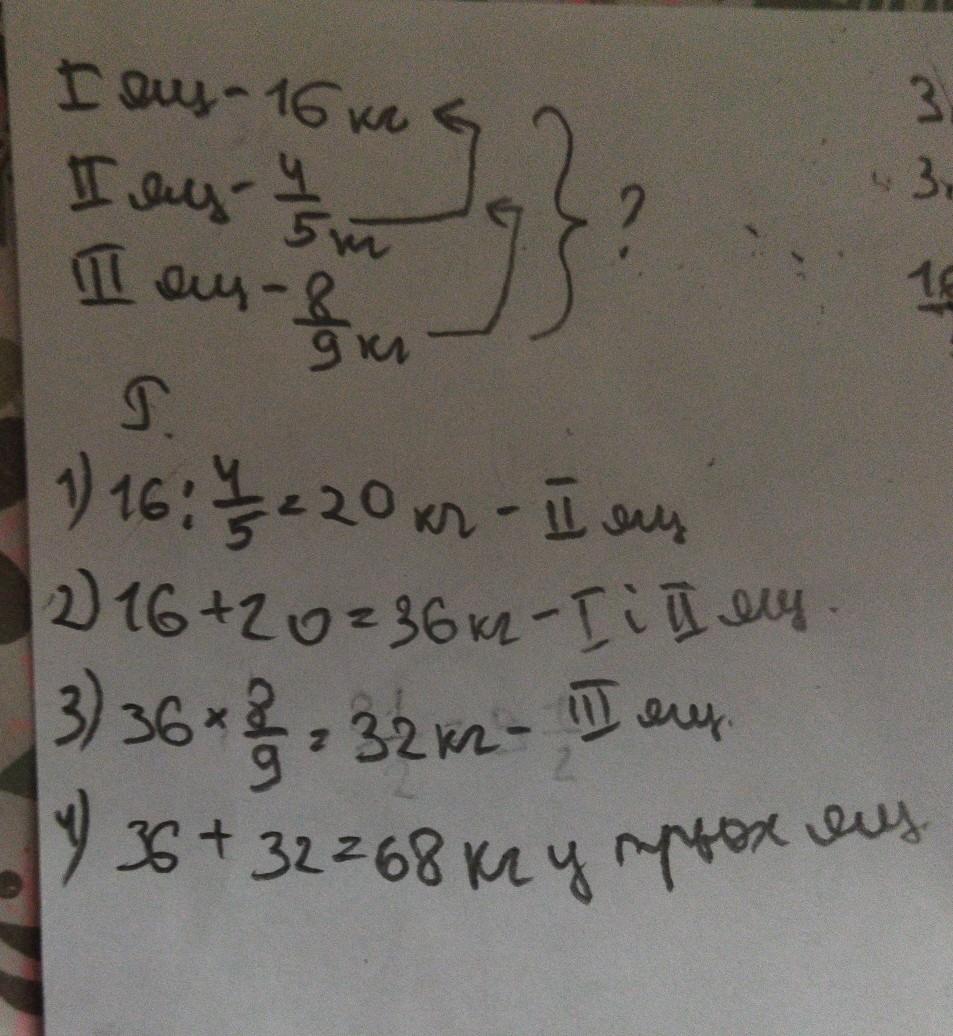 I ящ - 16 кг
II ящ - 4/5 кг
III ящ - 8/9 кг
?
1) 16 : 4/5 = 20 кг - II ящ
2) 16 + 20 = 36 кг - I і II ящ.
3) 36 × 8/9 = 32 кг - III ящ.
4) 36 + 32 = 68 кг у трьох ящ.
3
3
16